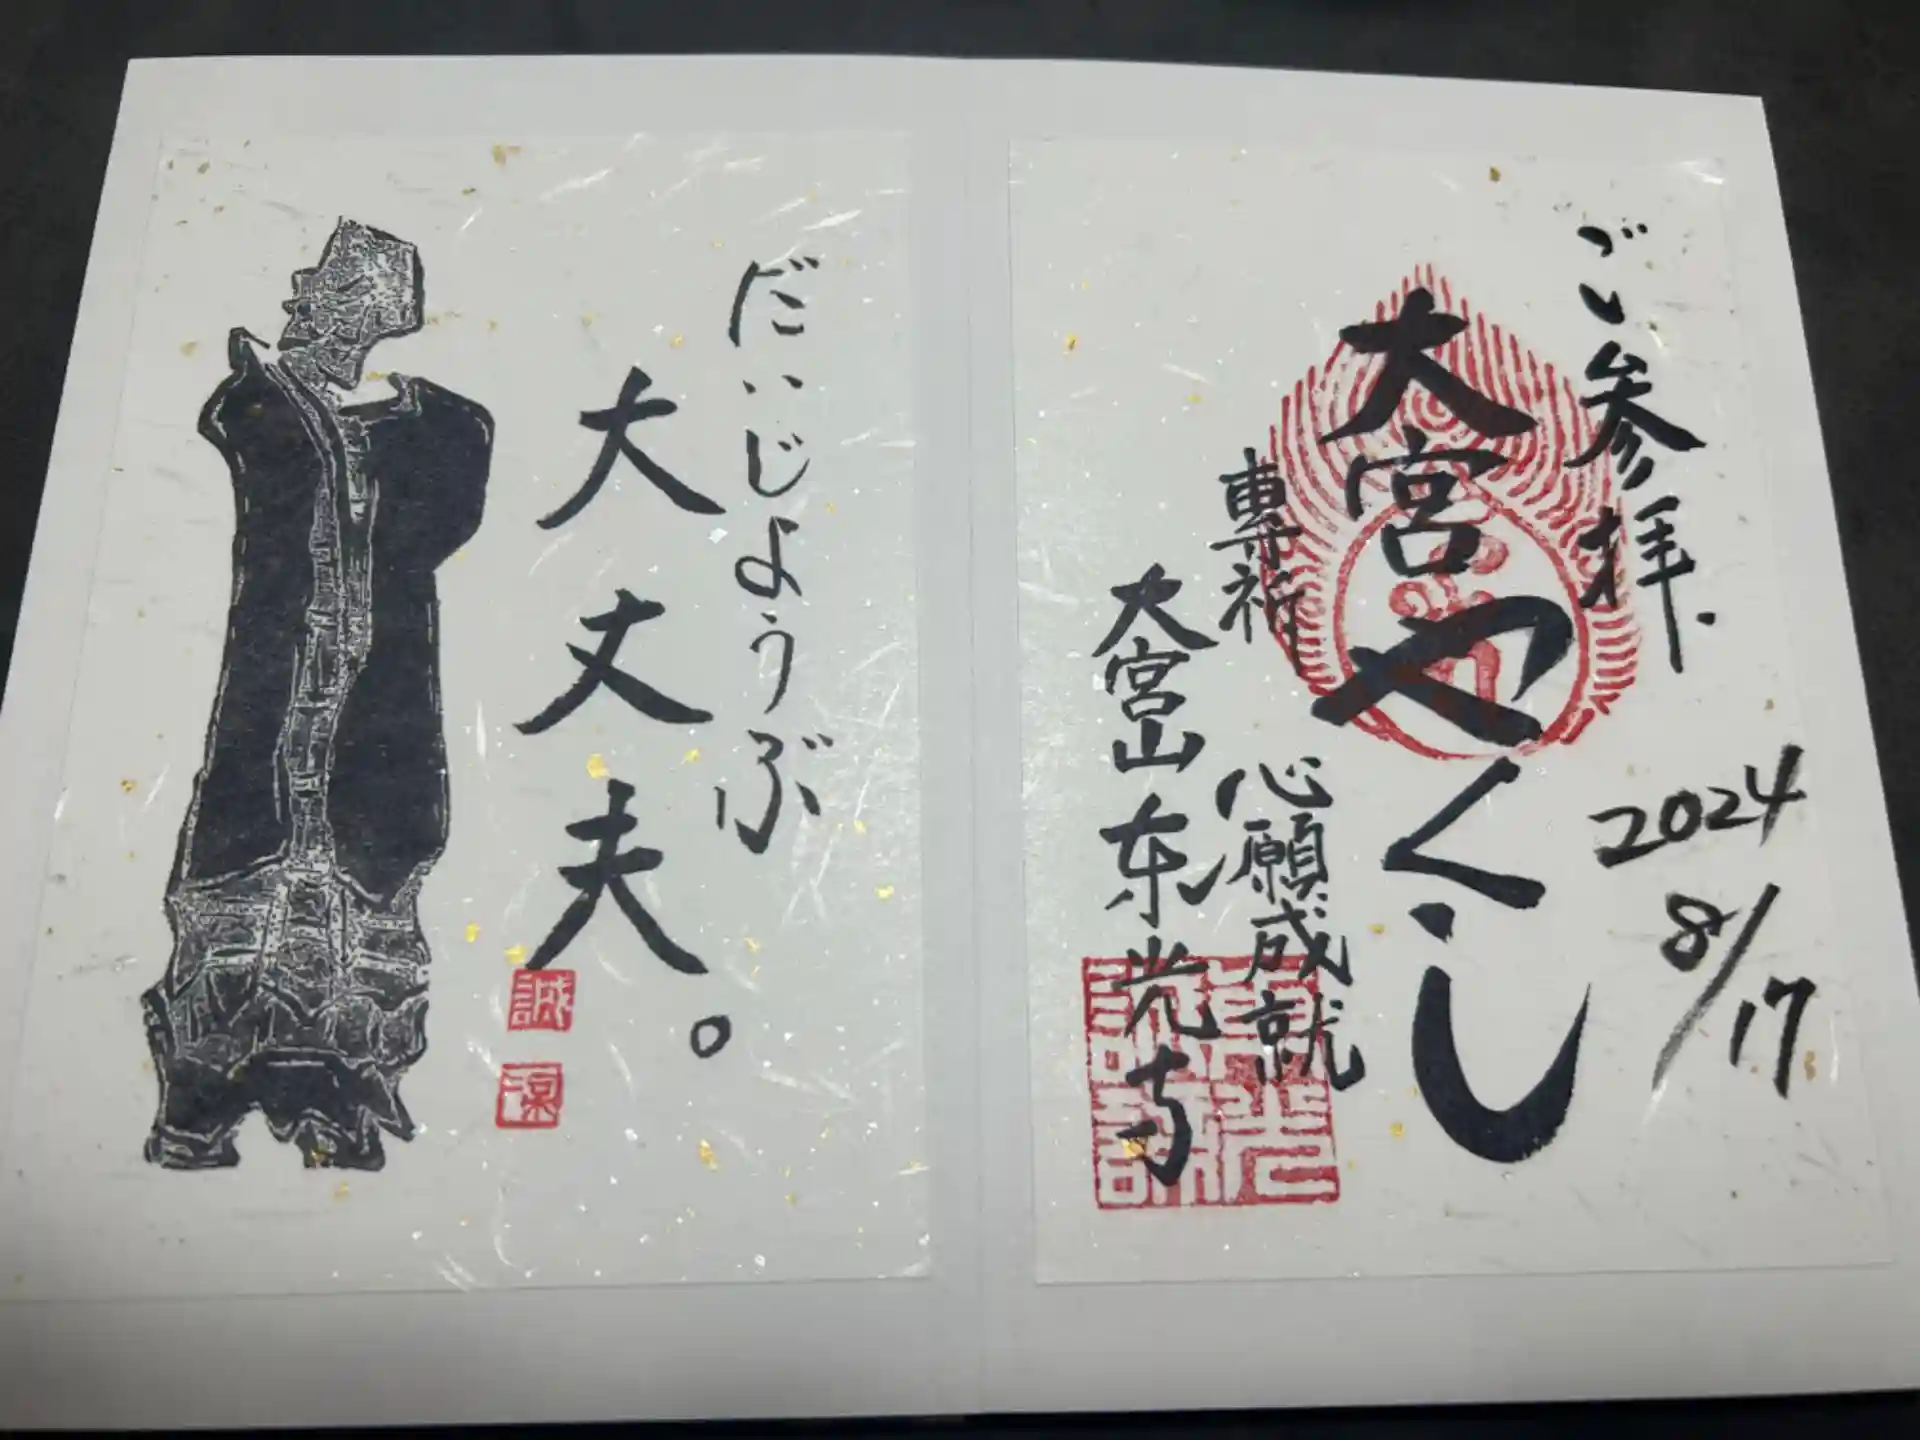 ご参拝.
2024
8/17
大宮やくし
専祈
心願成就
大宮山东光寺
だいじようぶ
大丈夫。
誠